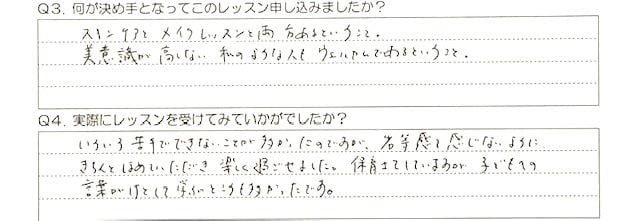 Q3. 何が決め手となってこのレッスン申し込みましたか？
スキンケアとメイクレッスンと両方あるということ。
美意識が高くない 私のような人も ウェルカムであるということ。
Q4. 実際にレッスンを受けてみていかがでしたか？
いろいろ苦手でできないことが多かったのですが、劣等感を感じないように
きちんとほめていただき 楽しく過ごせました。保育士をしているのが 子どもへの
言葉がけとして学ぶところも多かったです。